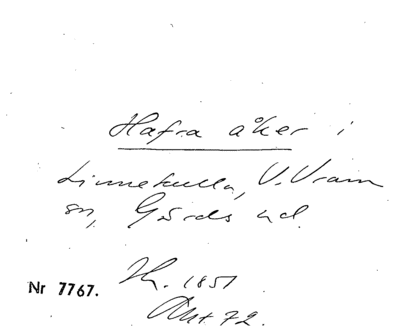 Hafra åker i
Linnekulla, V. Vram
sn, Gärds hd.
Nr 7767.
1851
72.